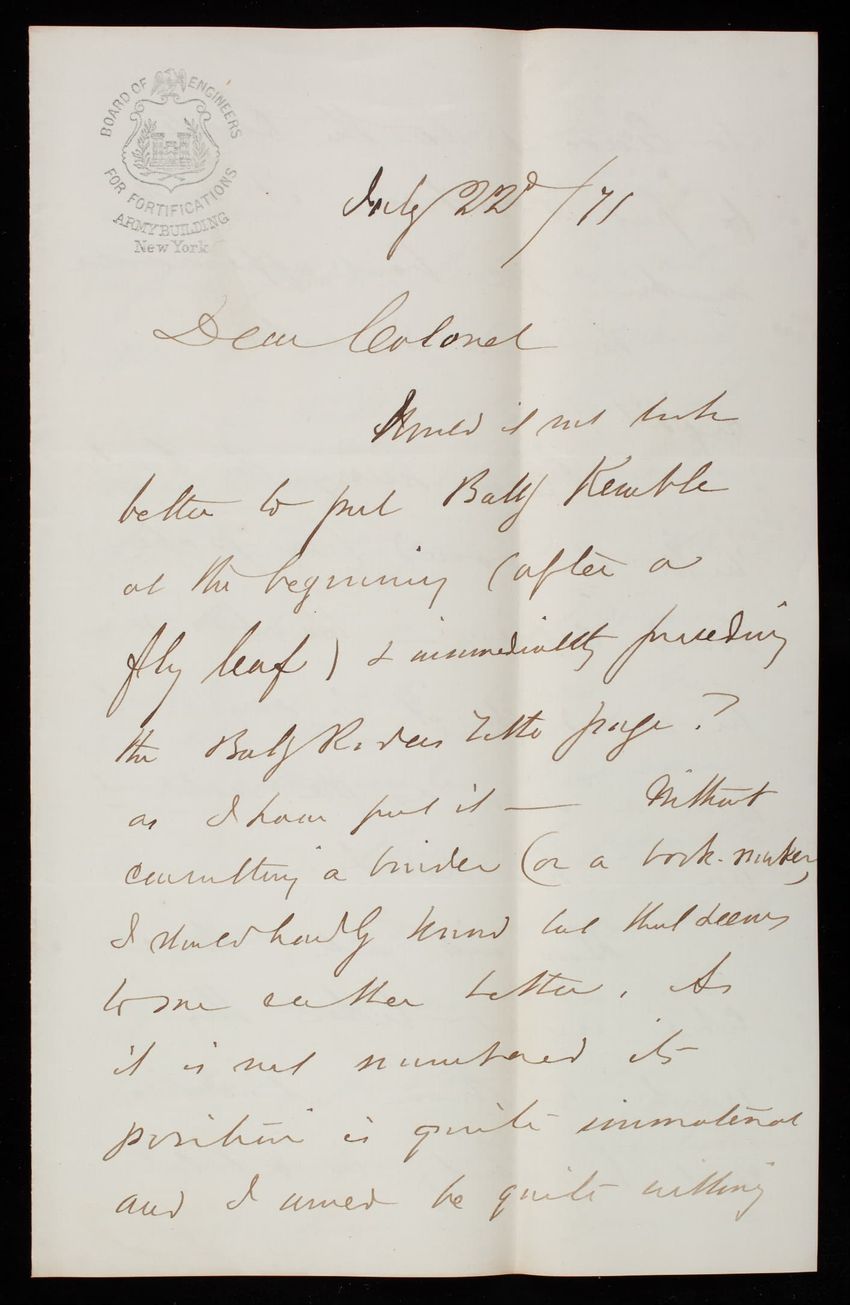 BOARD OF ENGINEERS
FOR FORTIFICATIONS
ARMY BUILDING
New York
July 22d/71
Dear Colonel
Would it not look
better to put Batty Kemble
at the beginning (after a
fly leaf) & immediately preceding
the Batty Rodgers title page?
as I have put it — Without
consulting a binder (or a book-maker)
I should hardly know but that seems
to me rather better. As
it is not numbered its
position is quite immaterial
and I would be quite willing